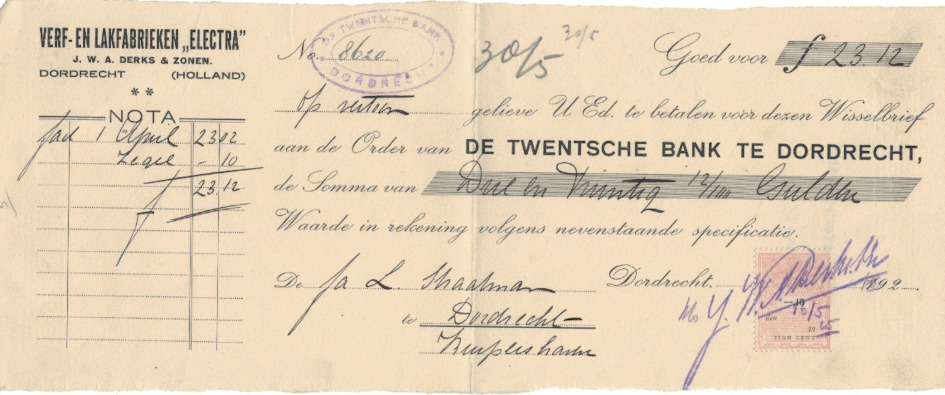 VERF- EN LAKFABRIEKEN „ELECTRA”
J. W. A. DERKS & ZONEN.
DORDRECHT (HOLLAND)
* *
NOTA
fad 1 April 23 02
Zegel - 10
f 23.12
DE TWENTSCHE BANK
DORDRECHT
No. 8620
30/5
30/5
Goed voor f 23.12
op vertoon gelieve U Ed. te betalen voor dezen Wisselbrief
aan de Order van DE TWENTSCHE BANK TE DORDRECHT,
de Somma van Drie en Twintig 12/100 Gulden
Waarde in rekening volgens nevenstaande specificatie.
De fa L. Straatman Dordrecht, 192
te Dordrecht
10
16/5
25
19
TIEN CENT